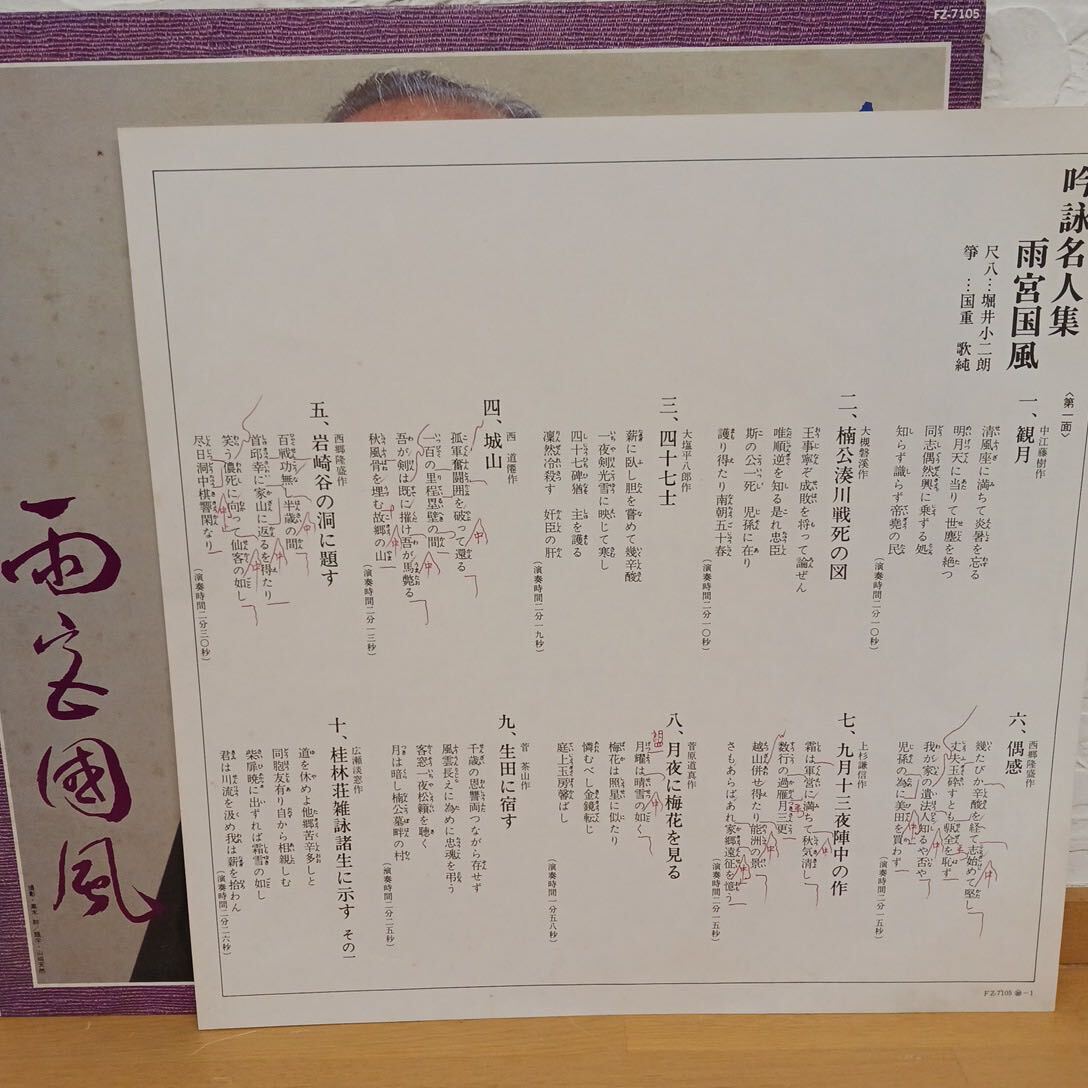 FZ-7105
吟詠名人集
雨宮国風
尺八…堀井小二朗
箏…国重 歌純
〈第一面〉
一、観月
中江藤樹作
清風座に満ちて炎暑を忘る
明月天に当りて世塵を絶つ
同志偶然興に乗ずる処
知らず識らず帝堯の民
(演奏時間二分一〇秒)
二、楠公湊川戦死の図
大槻磐溪作
王事寧ぞ成敗を将って論ぜん
唯順逆を知る是れ忠臣
斯の公一死 児孫に在り
護り得たり南朝五十春
(演奏時間二分一〇秒)
三、四十七士
大塩平八郎作
薪に臥し胆を嘗めて幾辛酸
一夜剣光雪に映じて寒し
四十七碑猶 主を護る
凜然冷殺す 奸臣の肝
(演奏時間二分一九秒)
四、城山
西 道僊作
孤軍奮闘囲を破って還る
一百の里程塁壁の間
吾が剣は既に摧け吾が馬斃る
秋風骨を埋む故郷の山
(演奏時間二分一三秒)
五、岩崎谷の洞に題す
西郷隆盛作
百戦功無し半歳の間
首邱幸に家山に返るを得たり
笑う儂死に向って仙客の如し
尽日洞中棋響閑なり
(演奏時間二分三〇秒)
六、偶感
西郷隆盛作
幾たびか辛酸を経て志始めて堅し
丈夫玉砕すとも甎全を恥ず
我が家の遺法人知るや否や
児孫の為に美田を買わず
(演奏時間二分一五秒)
七、九月十三夜陣中の作
上杉謙信作
霜は軍営に満ちて秋気清し
数行の過雁月三更
越山併せ得たり能洲の景
さもあらばあれ家郷遠征を憶う
(演奏時間二分一五秒)
八、月夜に梅花を見る
菅原道真作
月耀は晴雪の如く
梅花は照星に似たり
憐むべし金鏡転じ
庭上玉房馨ばし
(演奏時間一分五八秒)
九、生田に宿す
菅 茶山作
千歳の恩讐両つながら存せず
風雲長えに為めに忠魂を弔う
客窓一夜松籟を聴く
月は暗し楠公墓畔の村
(演奏時間二分二五秒)
十、桂林荘雑詠諸生に示す その一
広瀬淡窓作
道を休めよ他郷苦辛多しと
同胞友有り自から相親しむ
柴扉暁に出ずれば霜雪の如し
君は川流を汲め我は薪を拾わん
(演奏時間二分二六秒)
FZ-7105 -1
雨宮國風